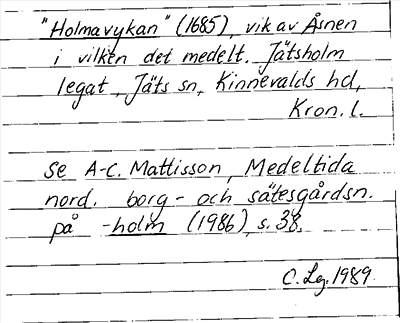 "Holmavykan" (1685), vik av Åsnen
i vilken det medelt. Jätsholm
legat, Jäts sn, Kinnevalds hd,
Kron. l.
Se A-C. Mattisson, Medeltida
nord. borg- och sätesgårdsn.
på -holm (1986), s. 38.
C. Lg. 1989